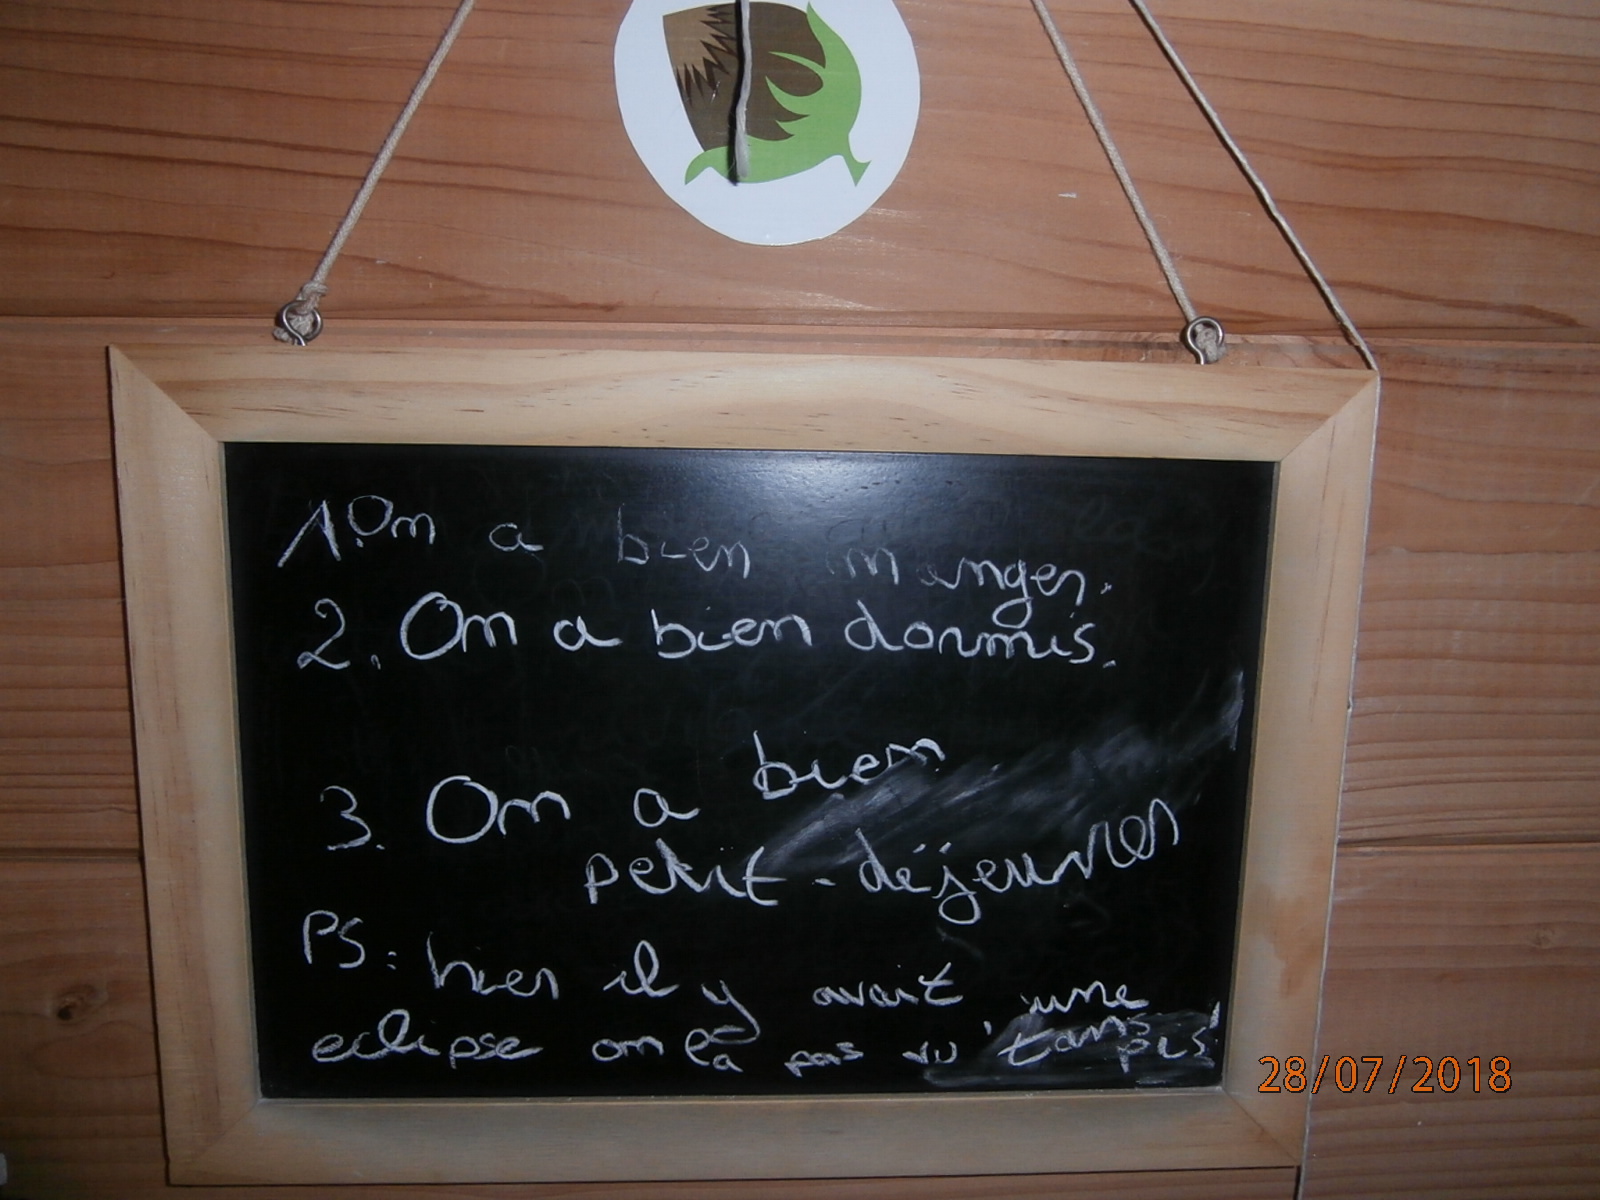 1. On a bien manger.
2. On a bien dormis.
3. On a bien
petit-déjeuner
PS: hier il y avait une
eclipse on la pas vu, tans
pis!
28/07/2018